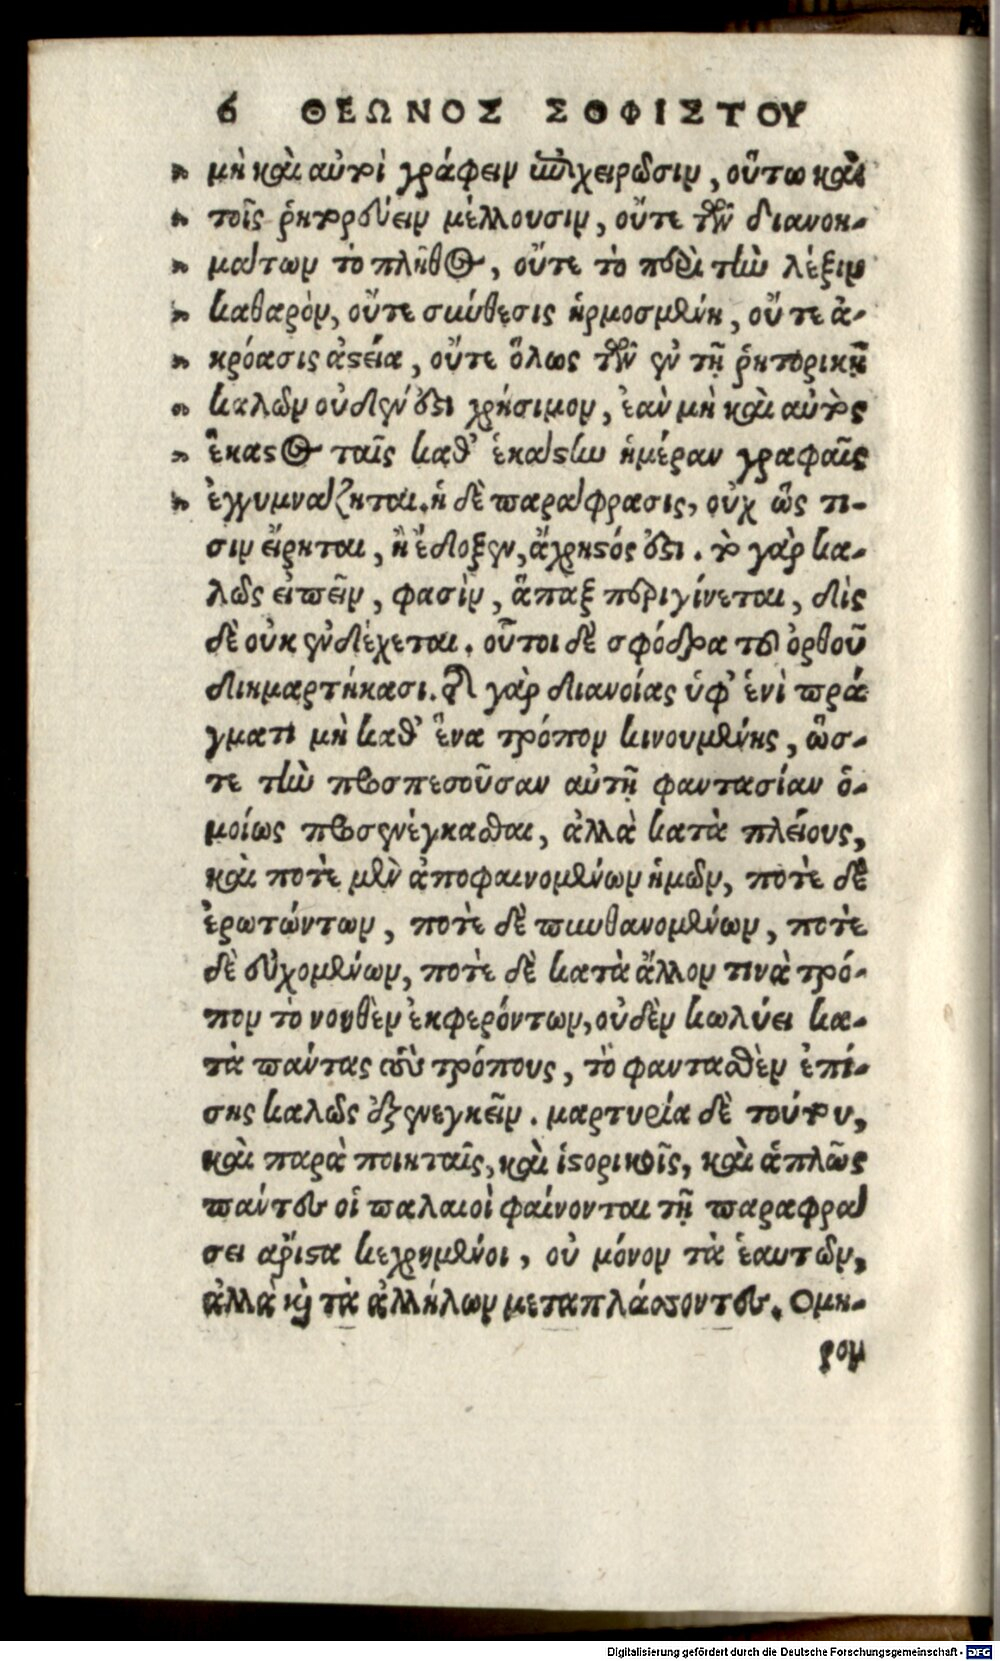 6 ΘΕΩΝΟΣ ΣΟΦΙΣΤΟΥ
" μὴ καὶ αὐτοὶ γράφειν ἐπιχειρῶσιν, οὕτω καὶ
" τοῖς ῥητορεύειν μέλλουσιν, οὔτε τῶν διανοη-
" μάτων τὸ πλῆθος, οὔτε τὸ περὶ τὴν λέξιν
" καθαρὸν, οὔτε σύνθεσις ἡρμοσμένη, οὔτε ἀ-
" κρόασις ἀστεία, οὔτε ὅλως τῶν ἐν τῇ ῥητορικῇ
" καλῶν οὐδέν ἐστι χρήσιμον, ἐὰν μὴ καὶ αὐτὸς
" ἕκαστος ταῖς καθ' ἑκάστην ἡμέραν γραφαῖς
" ἐγγυμνάζηται. ἡ δὲ παράφρασις, οὐχ ὥς τι-
σιν εἴρηται, ἢ ἔδοξεν, ἄχρηστός ἐστι. τὸ γὰρ κα-
λῶς εἰπεῖν, φασὶν, ἅπαξ περιγίνεται, δὶς
δὲ οὐκ ἐνδέχεται. οὗτοι δὲ σφόδρα τοῦ ὀρθοῦ
διημαρτήκασι. τῆς γὰρ διανοίας ὑφ' ἑνὶ πρά
γματι μὴ καθ' ἕνα τρόπον κινουμένης, ὥσ-
τε τὴν προσπεσοῦσαν αὐτῇ φαντασίαν ὁ-
μοίως προσενέγκασθαι, ἀλλὰ κατὰ πλείους,
καὶ ποτὲ μὲν ἀποφαινομένων ἡμῶν, ποτὲ δὲ
ἐρωτώντων, ποτὲ δὲ πυνθανομένων, ποτὲ
δὲ εὐχομένων, ποτὲ δὲ κατὰ ἄλλον τινὰ τρό-
πον τὸ νοηθὲν ἐκφερόντων, οὐδὲν κωλύει κα-
τὰ πάντας τοὺς τρόπους, τὸ φαντασθὲν ἐπί-
σης καλῶς ἐξενεγκεῖν. μαρτυρία δὲ τούτου,
καὶ παρὰ ποιηταῖς, καὶ ἱστορικοῖς, καὶ ἁπλῶς
πάντες οἱ παλαιοὶ φαίνονται τῇ παραφρά
σει ἄριστα κεχρημένοι, οὐ μόνον τὰ ἑαυτῶν,
ἀλλὰ καὶ τὰ ἀλλήλων μεταπλάσσοντες. Ομη-
ρον
Digitalisierung gefördert durch die Deutsche Forschungsgemeinschaft - DFG